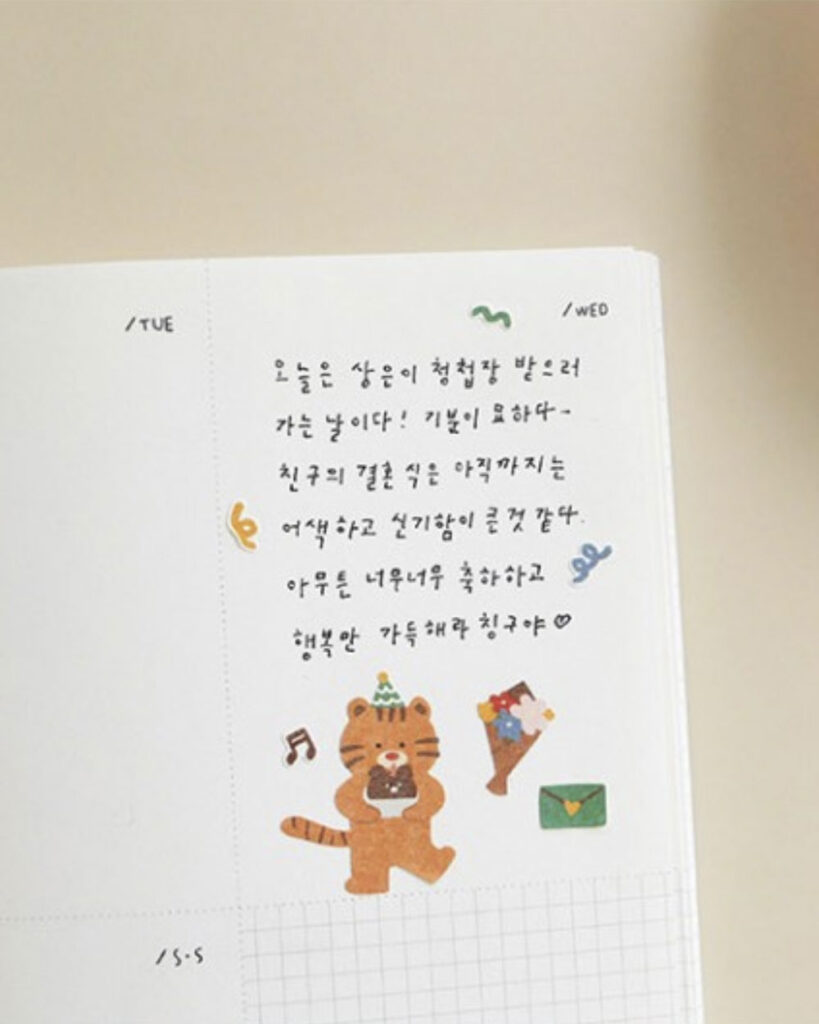 /TUE
/WED
오늘은 상은이 청첩장 받으러
가는 날이다! 기분이 묘하다-
친구의 결혼식은 아직까지는
어색하고 신기함이 큰 것 같다.
아무튼 너무너무 축하하고
행복만 가득해라 친구야♡
/S·S